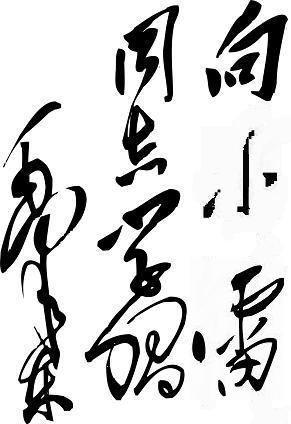 向小雷
同志学习
毛泽东